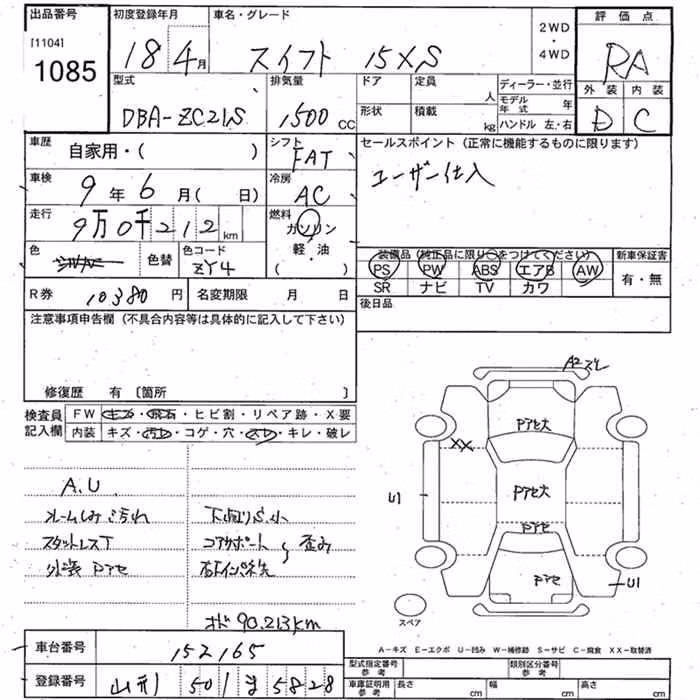 出品番号 初度登録年月 車名・グレード 2WD・4WD 評価点
[1104] 1085
18年4月 スイフト 15XS RA
型式 排気量 ドア 定員 人 ディーラー・並行 外装 内装
DBA-ZC21S 1,500cc 形状 積載 kg モデル年式 年 D C
ハンドル 左・右
車歴 自家用・( ) シフト FAT セールスポイント (正常に機能するものに限ります)
車検 9年6月( 日) 冷房 AC ユーザー仕入
走行 9万0千212km 燃料 ガソリン 軽・油 ( )
色 色替 色コード ZY4
装備品 (純正品に限り○をつけてください) 新車保証書
PS PW ABS エアB AW 有・無
SR ナビ TV カワ
R券 10380円 名変期限 月 日 後日品
注意事項申告欄 (不具合内容等は具体的に記入して下さい)
修復歴 有 〔箇所 〕
検査員記入欄 FW キズ・飛石・ヒビ割・リペア跡・X要
内装 キズ・汚れ・コゲ・穴・スレ・キレ・破レ
A.U.
スタットレスT
外装 Pアセ
下廻りS小
コアサポート 歪み
右インパネ先
オド 90.213km
A2
Pアセ大
XX
Pアセ大
U1
Pアセ
Pアセ
U1
スペア
A-キズ E-エクボ U-凹み W-補修跡 S-サビ C-腐食 XX-取替済
車台番号 152165
登録番号 山形 501 ま 5828
型式指定番号 参考 類別区分番号 参考
車庫証明用 参考 長さ cm 幅 cm 高さ cm